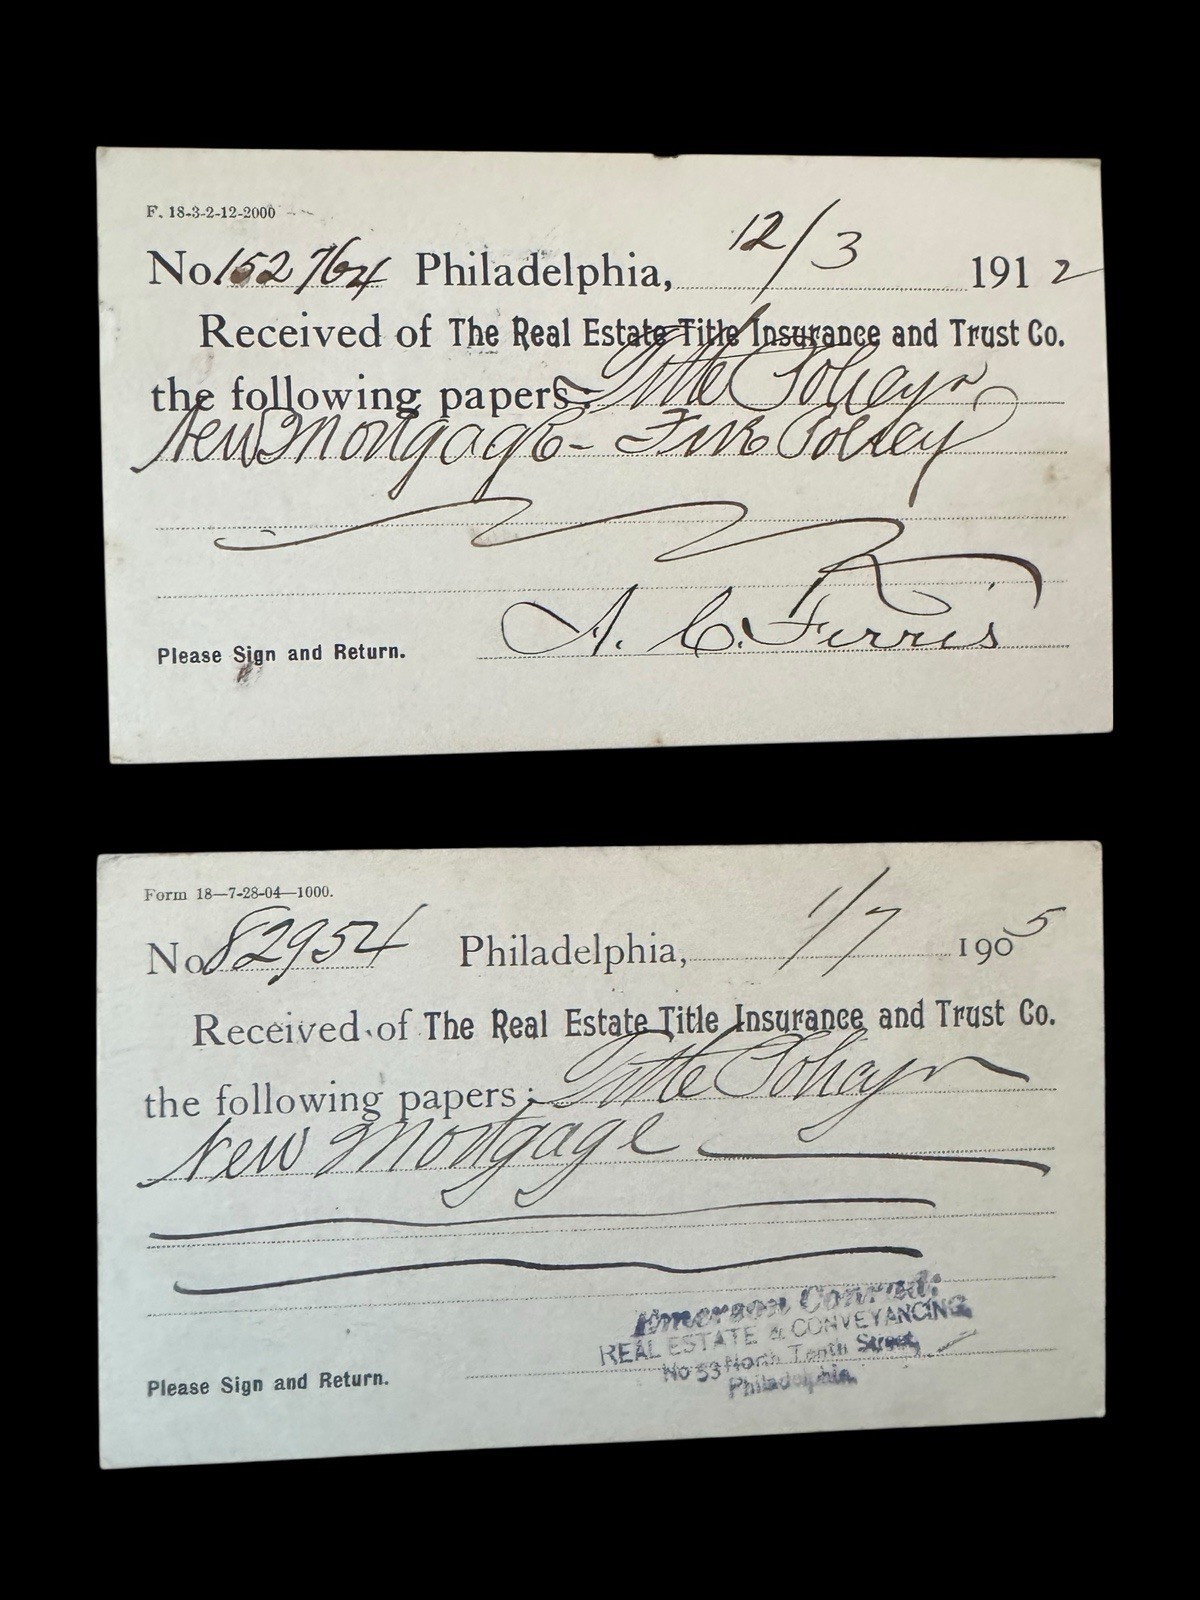 F. 18-3-2-12-2000
No. 152764 Philadelphia, 12/3 1912
Received of The Real Estate Title Insurance and Trust Co.
the following papers: Title Policy
New Mortgage - Fire Policy
A. C. Ferris
Please Sign and Return.
Form 18—7-28-04—1000.
No 82954 Philadelphia, 1/7 1905
Received of The Real Estate Title Insurance and Trust Co.
the following papers: Title Policy
New Mortgage
Emerson Conrad,
REAL ESTATE & CONVEYANCING
No 53 North Tenth Street,
Philadelphia.
Please Sign and Return.